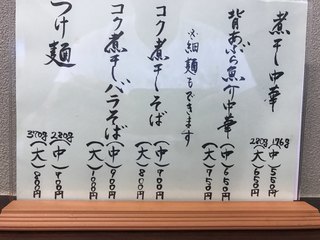 煮干中華
176g(中)550円
220g(大)650円
背あぶら魚介中華
(中)650円
(大)750円
※細麺もできます
コク煮干しそば
(中)700円
(大)800円
コク煮干しバラそば
(中)900円
(大)1000円
つけ麺
220g(中)700円
370g(大)800円